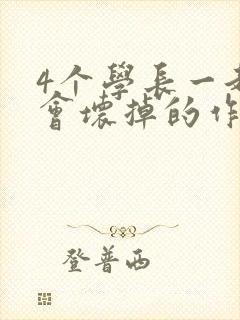 4个學長一
會壞掉的作
登普西